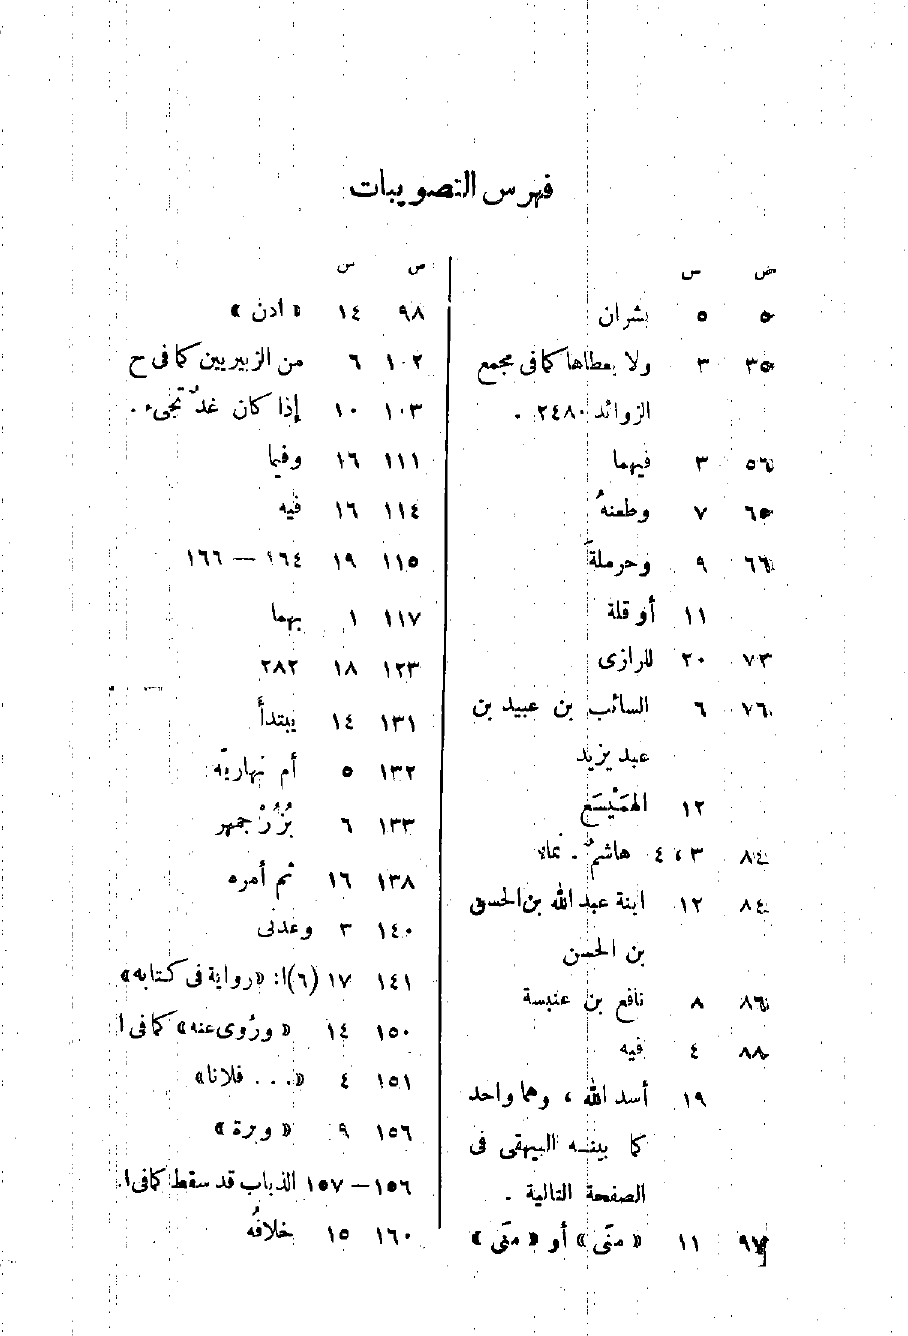 فهرس التصويبات
ص س
٥ ٥ بشران
٣٥ ٣ ولا بعطاها كما فى مجمع
الزوائد ٢٤٨٠ .
٥٦ ٣ فيهما
٦٥ ٧ وطعنهُ
٦٦ ٩ وحرملةَ
١١ أو قلة
٧٣ ٢٠ للرازى
٧٦ ٦ السائب بن عبيد بن
عبد يزيد
١٢ الهَمَيْسَع
٨٤ ٣ ، ٤ هاشمٌ .
٨٤ ١٢ ابنة عبد الله بن الحسن
بن الحسن
٨٦ ٨ نافع بن عنبسة
٨٨ ٤ فيه
١٩ أسد الله ، وهما واحد
كما بينه البيهقى فى
الصفحة التالية .
٩٧ ١١ « متّى » أو « متى »
ص س
٩٨ ١٤ « ادن »
١٠٢ ٦ من الزبيريين كما فى ح
١٠٣ ١٠ إذا كان غدٌ تجىء .
١١١ ١٦ وفيما
١١٤ ١٦ فيه
١١٥ ١٩ ١٦٤ — ١٦٦
١١٧ ١ بهما
١٢٣ ١٨ ٢٨٢
١٣١ ١٤ يبتدأ
١٣٢ ٥ أم نهاريّة
١٣٣ ٦ بُزُرْجمهر
١٣٨ ١٦ ثم أمره
١٤٠ ٣ وعدنى
١٤١ ١٧ (٦) ا: «رواية فى كتابه»
١٥٠ ١٤ « ورُوى عنه» كما فى ا
١٥١ ٤ «... فلانا»
١٥٦ ٩ « وبرة »
١٥٦ — ١٥٧ الذباب قد سقط كما فى ا.
١٦٠ ١٥ خلافُه